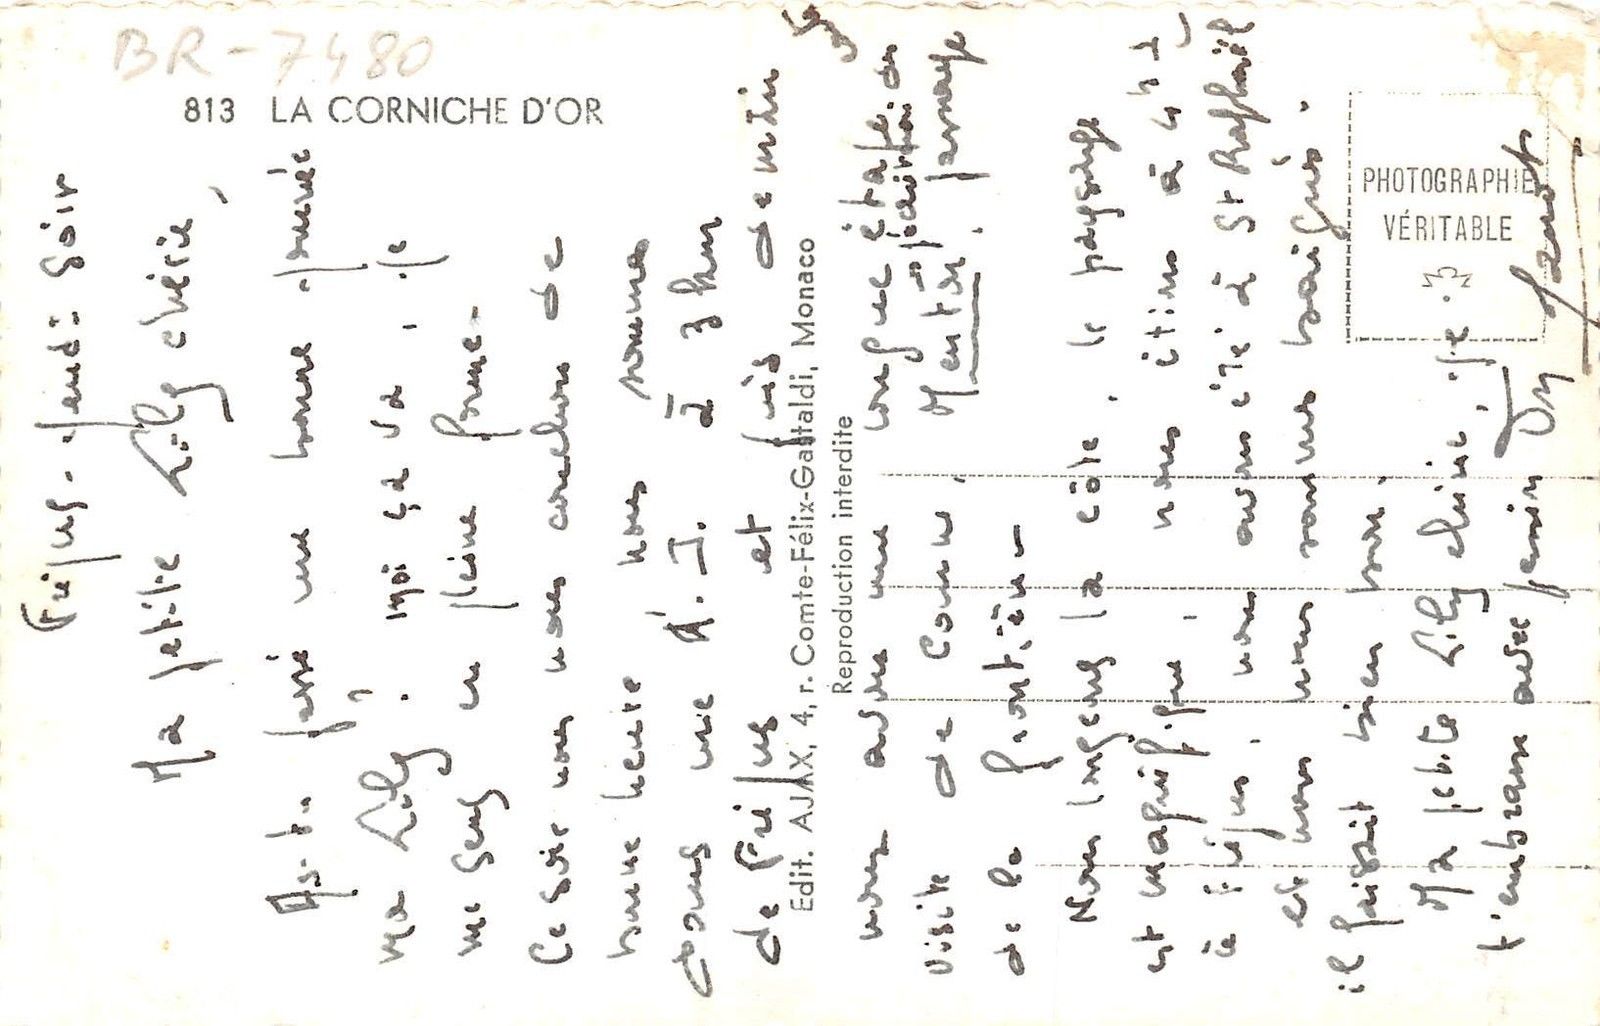 BR-7480
813 LA CORNICHE D'OR
Fréjus. Jeudi soir
Ma petite Lily chérie,
As-tu passé une bonne journée
ma Lily ? moi ça va, je
me sens en pleine forme.
Ce soir nous nous couchons de
bonne heure nous sommes
tous une A. J. à 3 km
de Fréjus et puis demain
nous avons une longue étape de
visite de Cannes,
Menton, jusqu'
de la frontière
Nous longeons la côte, le paysage
est magnifique, nous étions à 4h
à Fréjus, nous avons été à St Raphaël
et nous nous sommes baignés.
il faisait bien bon.
Ma petite Lily chérie, je
t'embrasse avec
Edit. AJAX, 4, r. Comte-Félix-Gastaldi, Monaco
Reproduction interdite
PHOTOGRAPHIE
VÉRITABLE